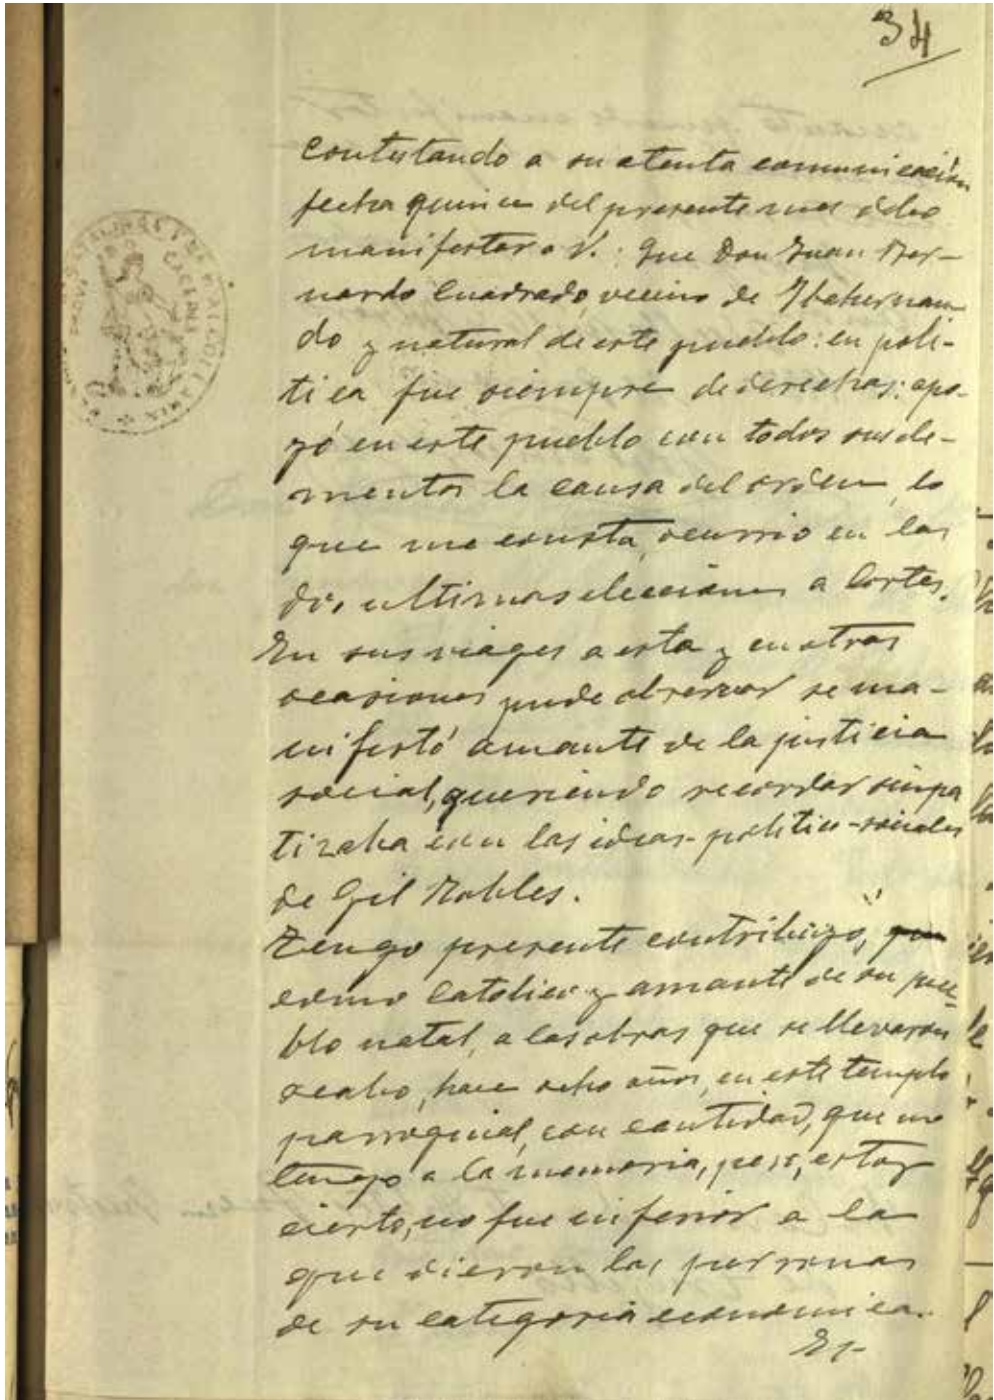 34
Contestando a su atenta comunicación
fecha quince del presente mes debo
manifestar a V.: Que Don Juan Ber-
nardo Cuadrado, vecino de Ibahernan-
do y natural de este pueblo: en poli-
tica fue siempre de derechas; apo-
yó en este pueblo con todos sus ele-
mentos la causa del orden, lo
que me consta, ocurrio en las
dos ultimas elecciones a Cortes.
En sus viages a esta y en otras
ocasiones pude observar se ma-
nifestó amante de la justicia
social, queriendo recordar simpa
tizaba con las ideas politico-sociales
de Gil Robles.
Tengo presente contribuyó,
como Catolico y amante de su pue-
blo natal, a las obras que se llevaron
acabo, hace ocho años, en este templo
parroquial, con cantidad, que no
tengo a la memoria, pero, estoy
cierto, no fue inferior a la
que dieron las personas
de su categoria economica.